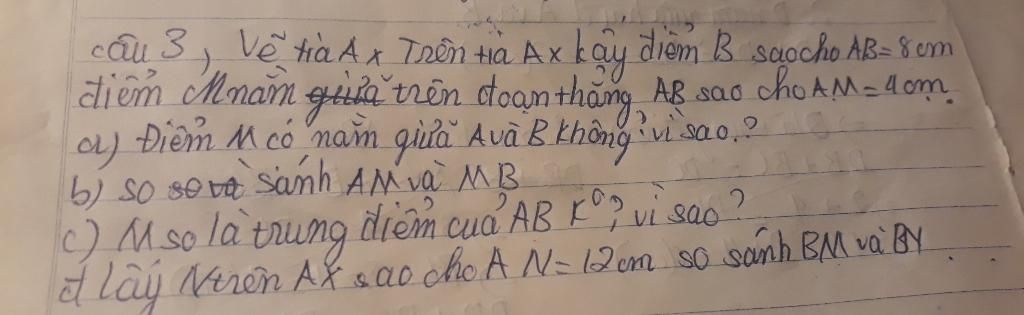 câu 3, Vẽ tia Ax Trên tia Ax lấy điểm B sao cho AB = 8cm
điểm M nằm giữa trên đoạn thẳng AB sao cho AM = 4cm.
a) Điểm M có nằm giữa A và B không? vì sao?
b) so so và sánh AM và MB
c) M so là trung điểm của AB K⁰? vì sao?
d lấy N trên AX sao cho AN = 12cm so sánh BM và BY